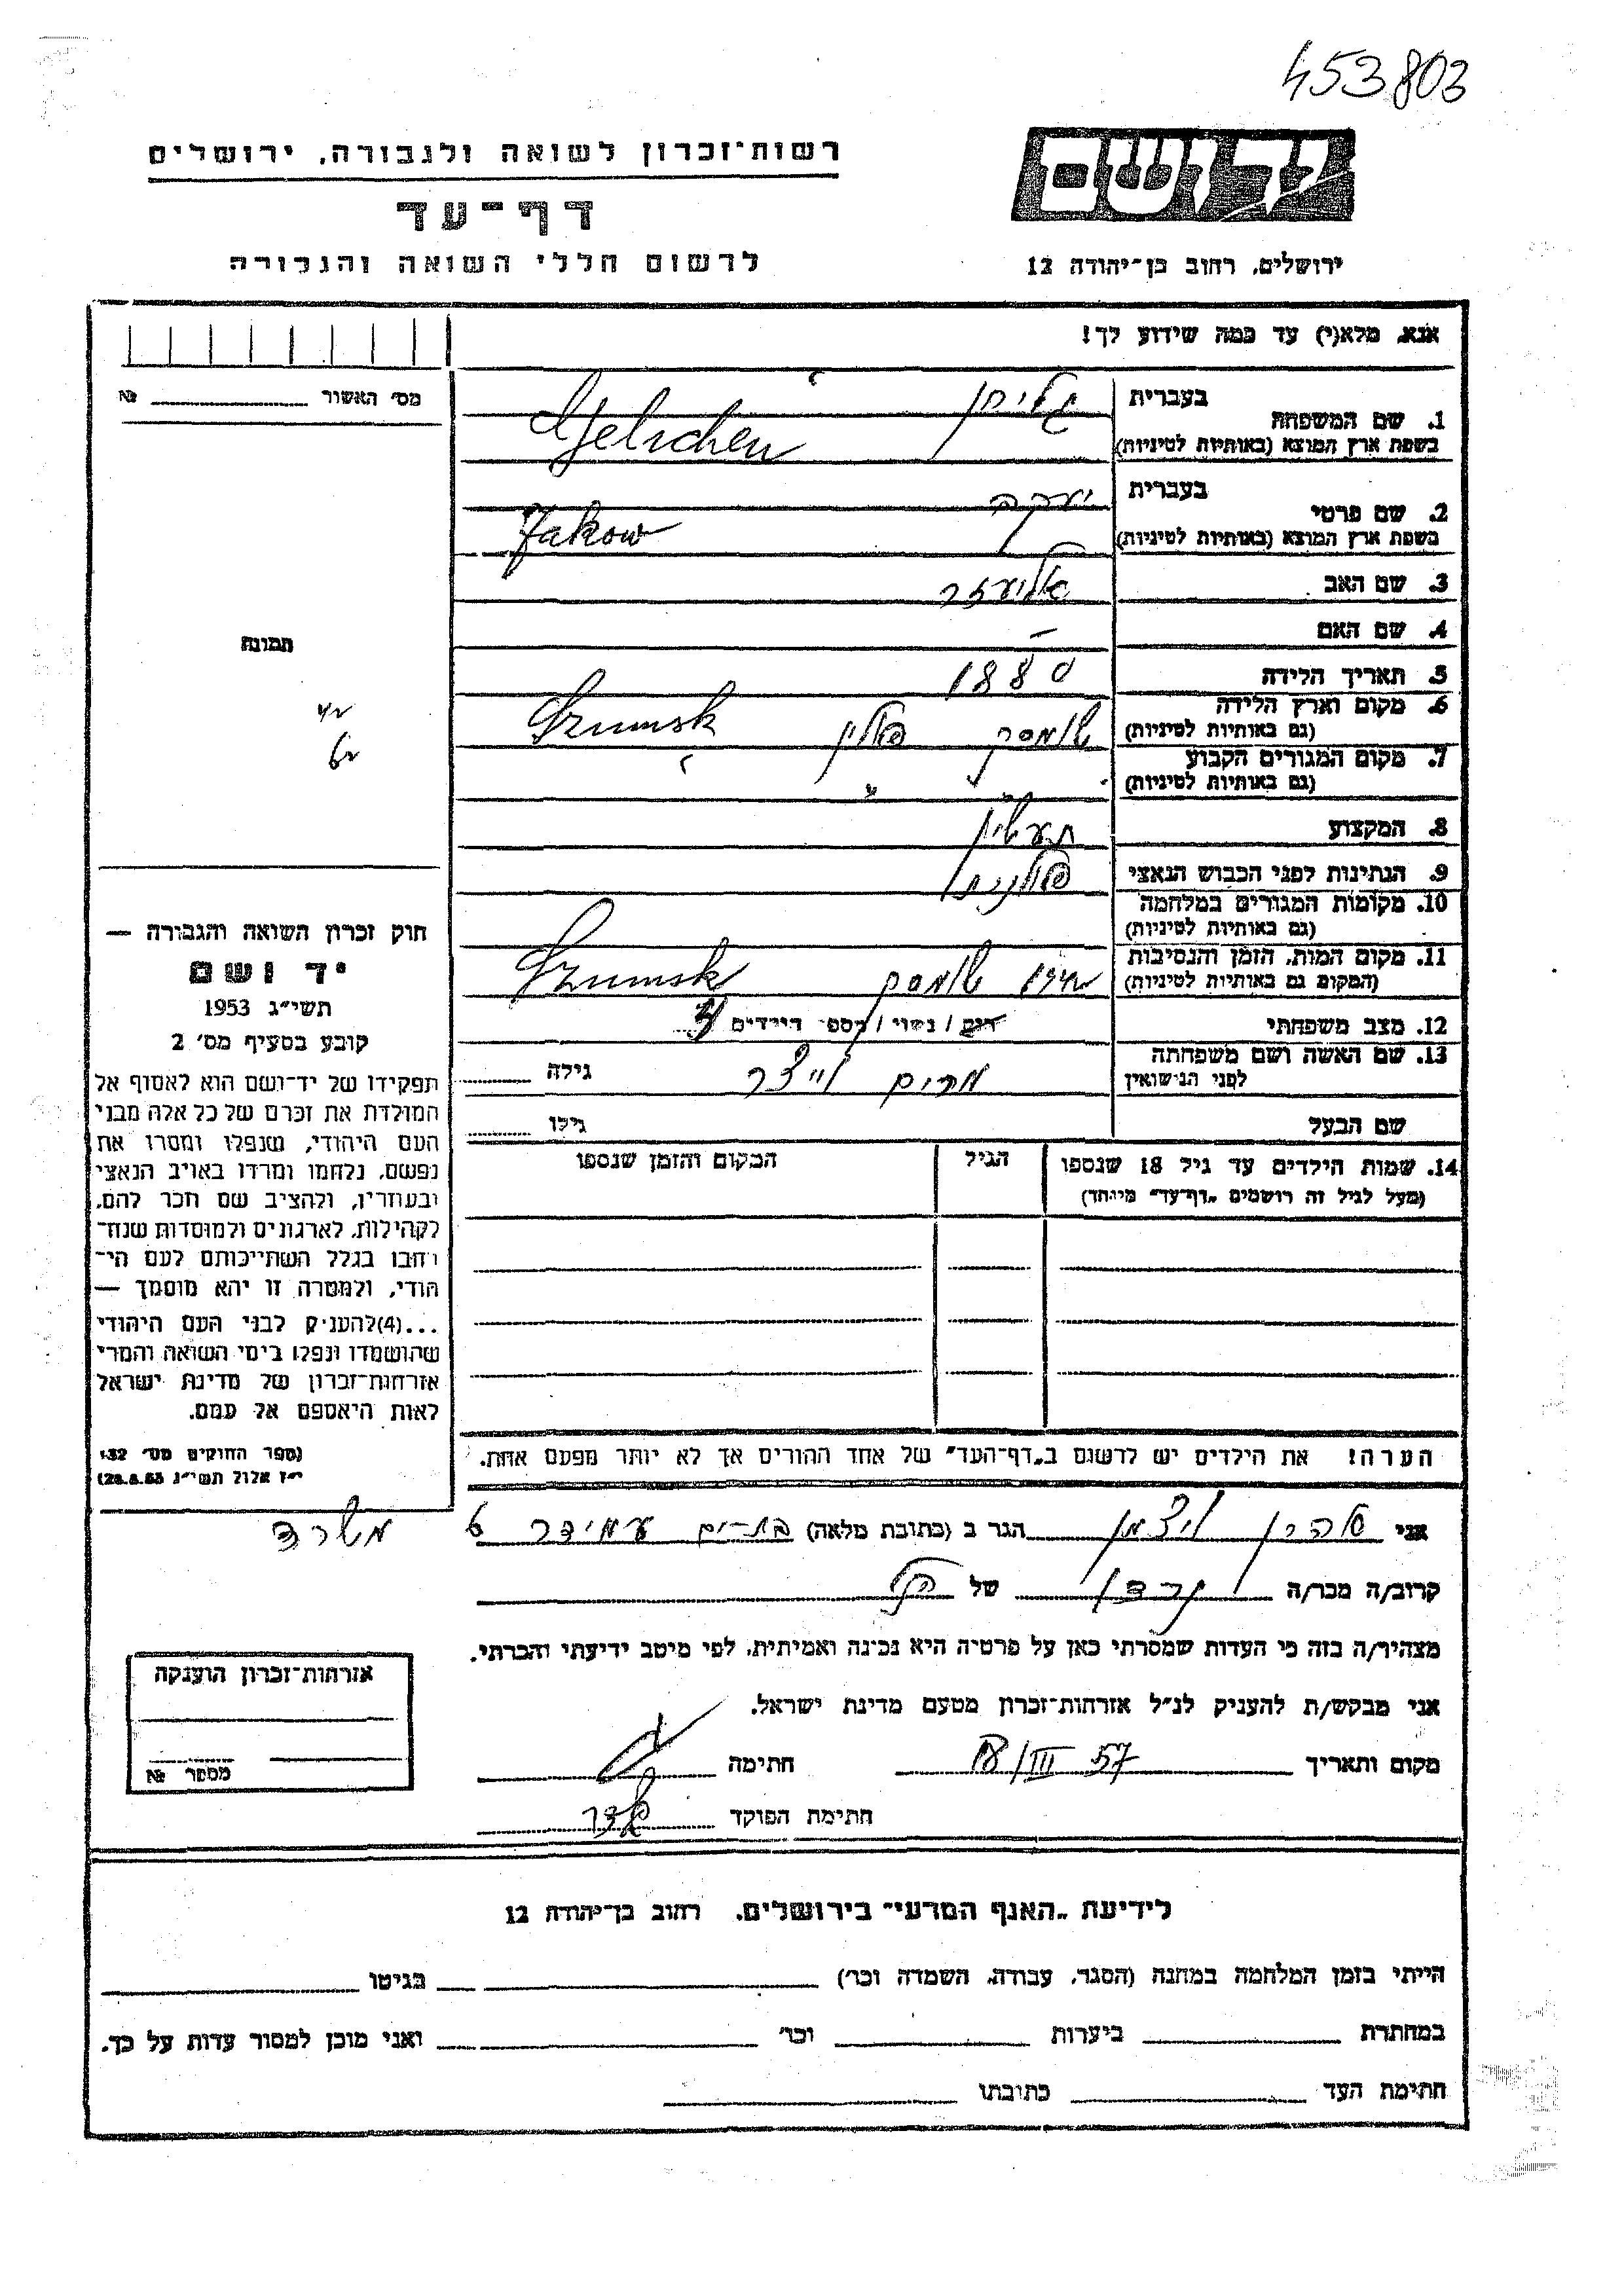 453803
רשות־זכרון לשואה ולגבורה, ירושלים
דף־עד
לרשום חללי השואה והגבורה
יד ושם
ירושלים, רחוב בן־יהודה 12
אנא, מלא(י) עד כמה שידוע לך!
מס׳ האשור № 
1. שם המשפחה
בעברית
בשפת ארץ המוצא (באותיות לטיניות)
Gelichen
2. שם פרטי
בעברית יעקב
בשפת ארץ המוצא (באותיות לטיניות) Jakow
3. שם האב אליעזר
4. שם האם —
5. תאריך הלידה 1880
6. מקום וארץ הלידה (גם באותיות לטיניות) שומסק פולין Szumsk
7. מקום המגורים הקבוע (גם באותיות לטיניות) " "
8. המקצוע תעשין
9. הנתינות לפני הכבוש הנאצי פולנית
10. מקומות המגורים במלחמה (גם באותיות לטיניות)
11. מקום המות, הזמן והנסיבות (המקום גם באותיות לטיניות) שומסק Szumsk
12. מצב משפחתי רוק / נשוי / מספר הילדים
13. שם האשה ושם משפחתה לפני הנישואין מרים גילה
שם הבעל גילו
14. שמות הילדים עד גיל 18 שנספו
(מעל לגיל זה רושמים „דף־עד" מיוחד)
הגיל
המקום והזמן שנספו
הערה! את הילדים יש לרשום ב„דף־העד" של אחד ההורים אך לא יותר מפעם אחת.
תמונה
חוק זכרון השואה והגבורה —
יד ושם
תשי״ג 1953
קובע בסעיף מס׳ 2
תפקידו של יד־ושם הוא לאסוף אל
המולדת את זכרם של כל אלה מבני
העם היהודי, שנפלו ומסרו את
נפשם, נלחמו ומרדו באויב הנאצי
ובעוזריו, ולהציב שם וזכר להם,
לקהילות, לארגונים ולמוסדות שנח־
רבו בגלל השתייכותם לעם הי־
הודי, ולמטרה זו יהא מוסמך —
...(4) להעניק לבני העם היהודי
שהושמדו ונפלו בימי השואה והמרי
אזרחות־זכרון של מדינת ישראל
לאות היאספם אל עמם.
(ספר החוקים מס׳ 132
י״ז אלול תשי״ג 28.8.53)
אני אהרן ויצמן הגר ב (כתובת מלאה) בת־ים עמידר 6
משרד
קרוב/ה מכר/ה של הנ״ל
מצהיר/ה בזה כי העדות שמסרתי כאן על פרטיה היא נכונה ואמיתית, לפי מיטב ידיעתי והכרתי.
אני מבקש/ת להעניק לנ״ל אזרחות־זכרון מטעם מדינת ישראל.
מקום ותאריך 18/III 57 חתימה
חתימת הפוקד
אזרחות־זכרון הוענקה
מספר №
לידיעת „האגף המדעי" בירושלים, רחוב בן־יהודה 12
הייתי בזמן המלחמה במחנה (הסגר, עבודה, השמדה וכו׳) בגיטו
במחתרת ביערות וכו׳ ואני מוכן למסור עדות על כך.
חתימת העד כתובתו